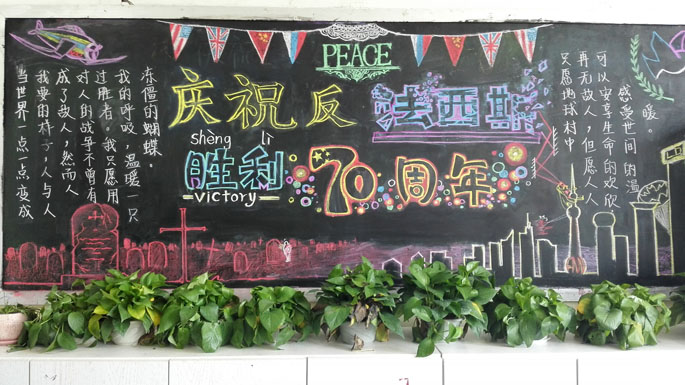 PEACE
庆祝反法西斯
shèng lì
胜利70周年
victory
当世界一点一点变成
我要的样子,人与人
成了敌人,然而人
对人的战争不曾有
过胜者。我只愿用
我的呼吸,温暖一只
冻僵的蝴蝶。
只愿地球村中
再无敌人,但愿人人
可以安享生命的欢欣
感受世间的温
暖。